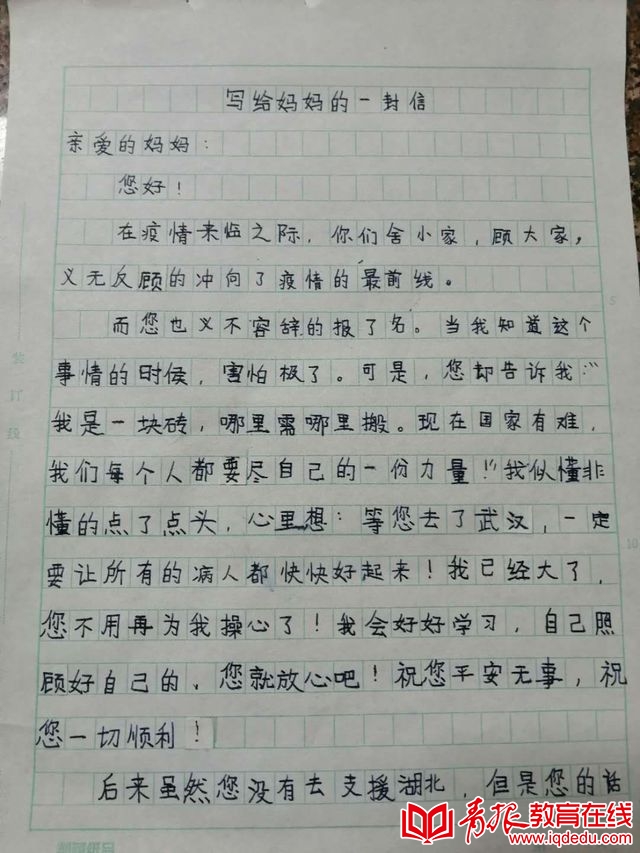 写给妈妈的一封信
亲爱的妈妈:
您好!
在疫情来临之际,你们舍小家,顾大家,
义无反顾的冲向了疫情的最前线。
而您也义不容辞的报了名。当我知道这个
事情的时候,害怕极了。可是,您却告诉我:“
我是一块砖,哪里需哪里搬。现在国家有难,
我们每个人都要尽自己的一份力量!”我似懂非
懂的点了点头,心里想:等您去了武汉,一定
要让所有的病人都快快好起来!我已经大了,
您不用再为我操心了!我会好好学习,自己照
顾好自己的、您就放心吧!祝您平安无事,祝
您一切顺利!
后来虽然您没有去支援湖北,但是您的话
装订线
5
10
青报教育在线
www.iqdedu.com